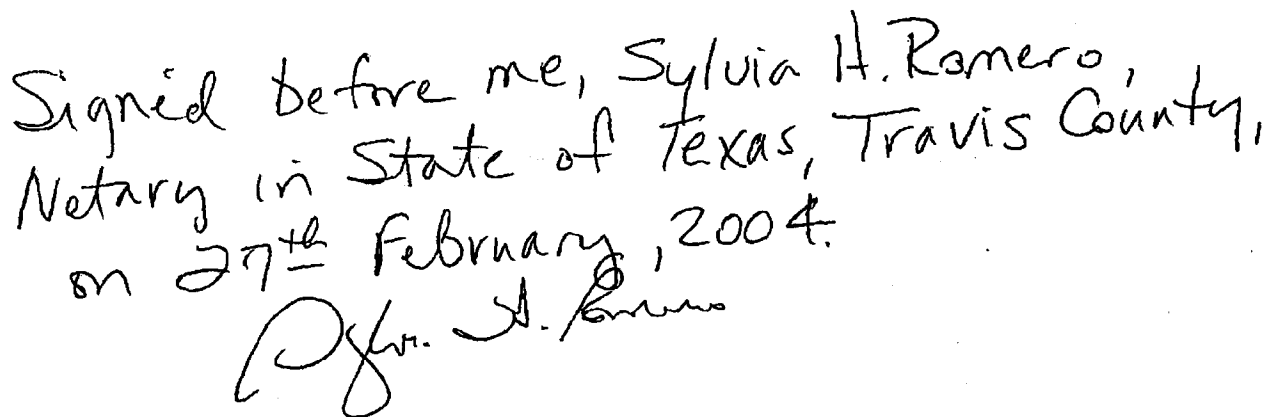 Signed before me, Sylvia H. Romero,
Notary in State of Texas, Travis County,
on 27th February, 2004.
Sylvia H. Romero